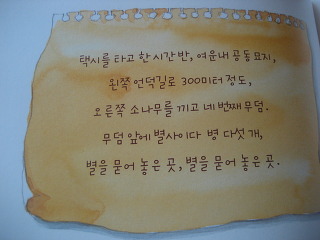 택시를 타고 한 시간 반, 여운내 공동묘지,
왼쪽 언덕길로 300미터 정도,
오른쪽 소나무를 끼고 네 번째 무덤.
무덤 앞에 별사이다 병 다섯 개,
별을 묻어 놓은 곳, 별을 묻어 놓은 곳.